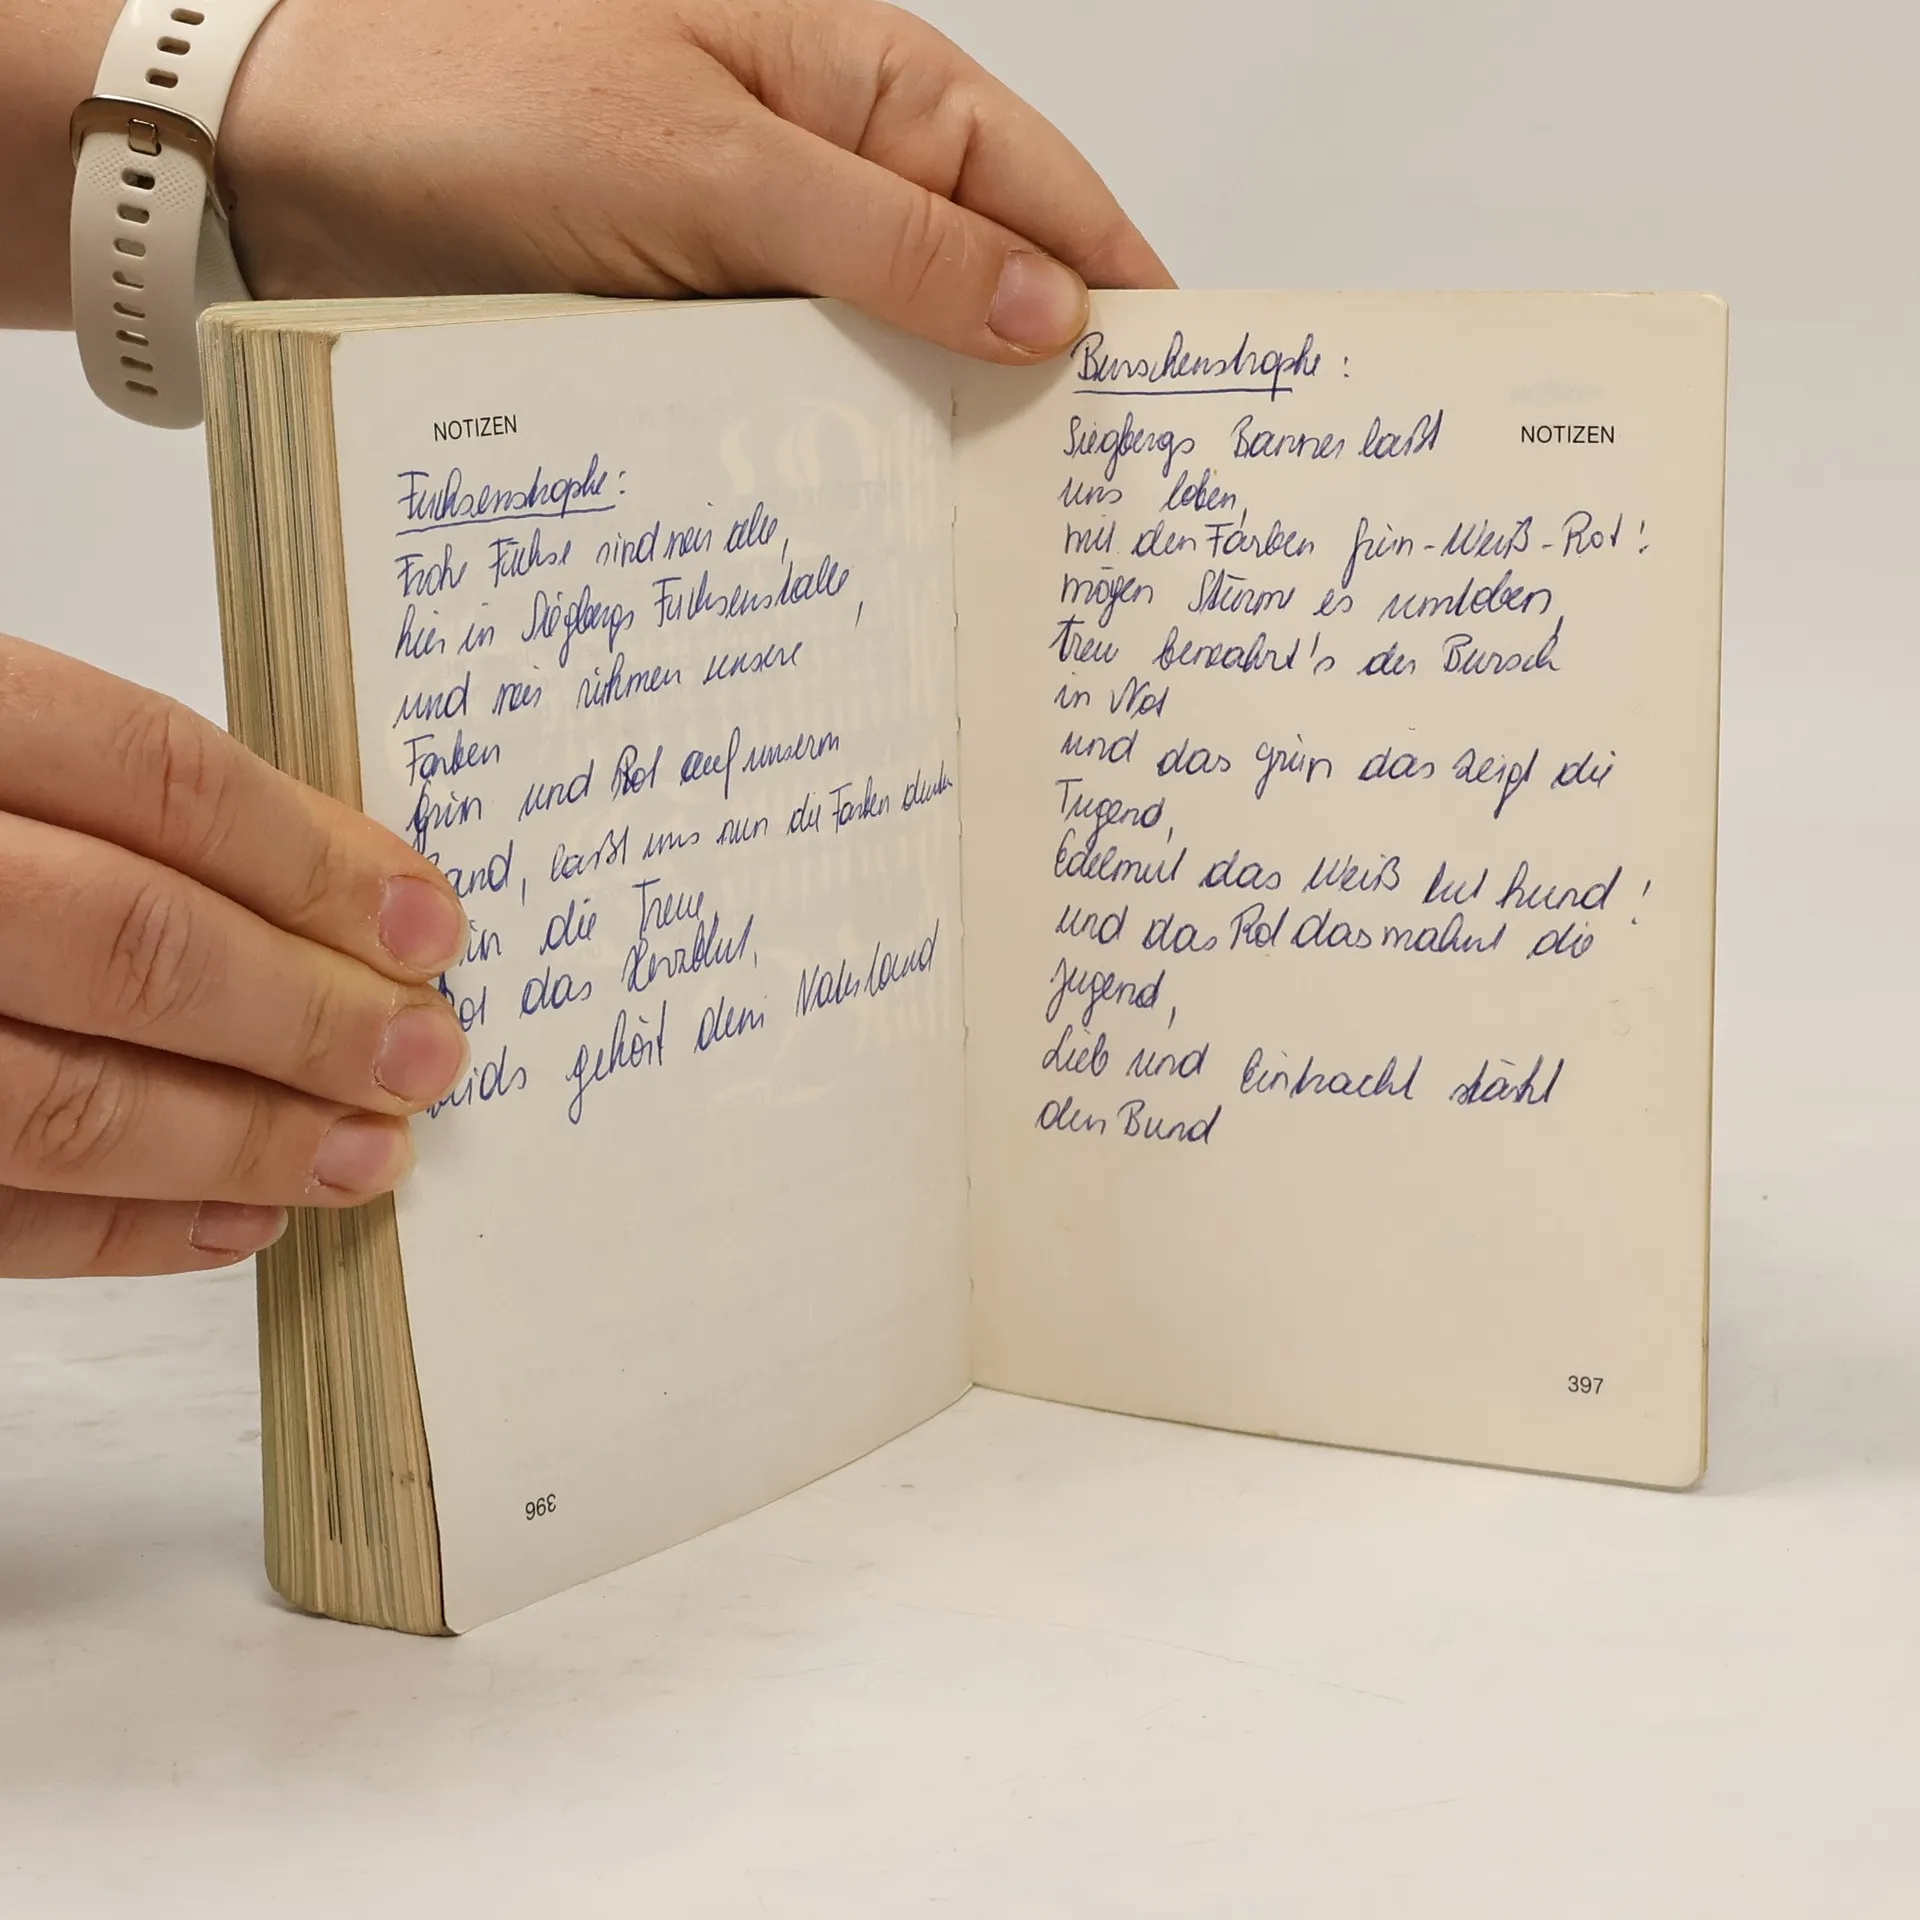 NOTIZEN
Fuchsenstrophe:
Frohe Füchse sind wir alle,
hier in Siegbergs Fuchsenstalle,
und wir rühmen unsere
Farben
Grün und Rot auf unserm
Band, laßt uns nun die Farben deuten
die Treue
das Herzblut,
gehört dem Vaterland
396
Burschenstrophe:
NOTIZEN
Siegbergs Banner laßt
uns loben,
mit den Farben Grün-Weiß-Rot!
mögen Stürme es umtoben,
treu bewahrt's der Bursch
in Not
und das Grün das zeigt die
Tugend,
Edelmut das Weiß tut kund!
und das Rot das mahnt die
Jugend,
Lieb und Eintracht stärkt
den Bund
397